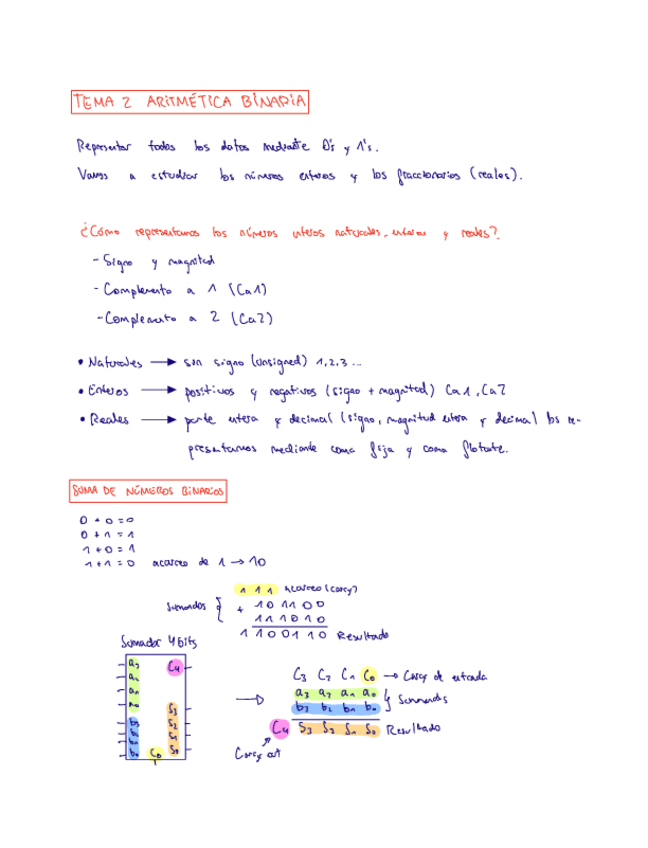 TEMA 2 ARITMÉTICA BINARIA
Representar todos los datos mediante 0's y 1's.
Vamos a estudiar los números enteros y los fraccionarios (reales).
¿Cómo representamos los números enteros naturales, enteros y reales?
- Signo y magnitud
- Complemento a 1 (Ca1)
- Complemento a 2 (Ca2)
• Naturales → son signo (unsigned) 1,2,3...
• Enteros → positivos y negativos (signo + magnitud) Ca1, Ca2
• Reales → parte entera y decimal (signo, magnitud entera y decimal) los re-
presentamos mediante coma fija y coma flotante.
SUMA DE NÚMEROS BINARIOS
0 + 0 = 0
0 + 1 = 1
1 + 0 = 1
1 + 1 = 0 acarreo de 1 → 10
1 1 1 Acarreo (carry)
Sumandos { + 101100
111010
1100110 Resultado
Sumador 4 bits
a3 C4
a2
a1
a0 S3
b3 S2
b2 S1
b1 S0
b0 C0
→
C3 C2 C1 C0 → Carry de entrada
a3 a2 a1 a0 } Sumandos
b3 b2 b1 b0
C4 S3 S2 S1 S0 Resultado
Carry out